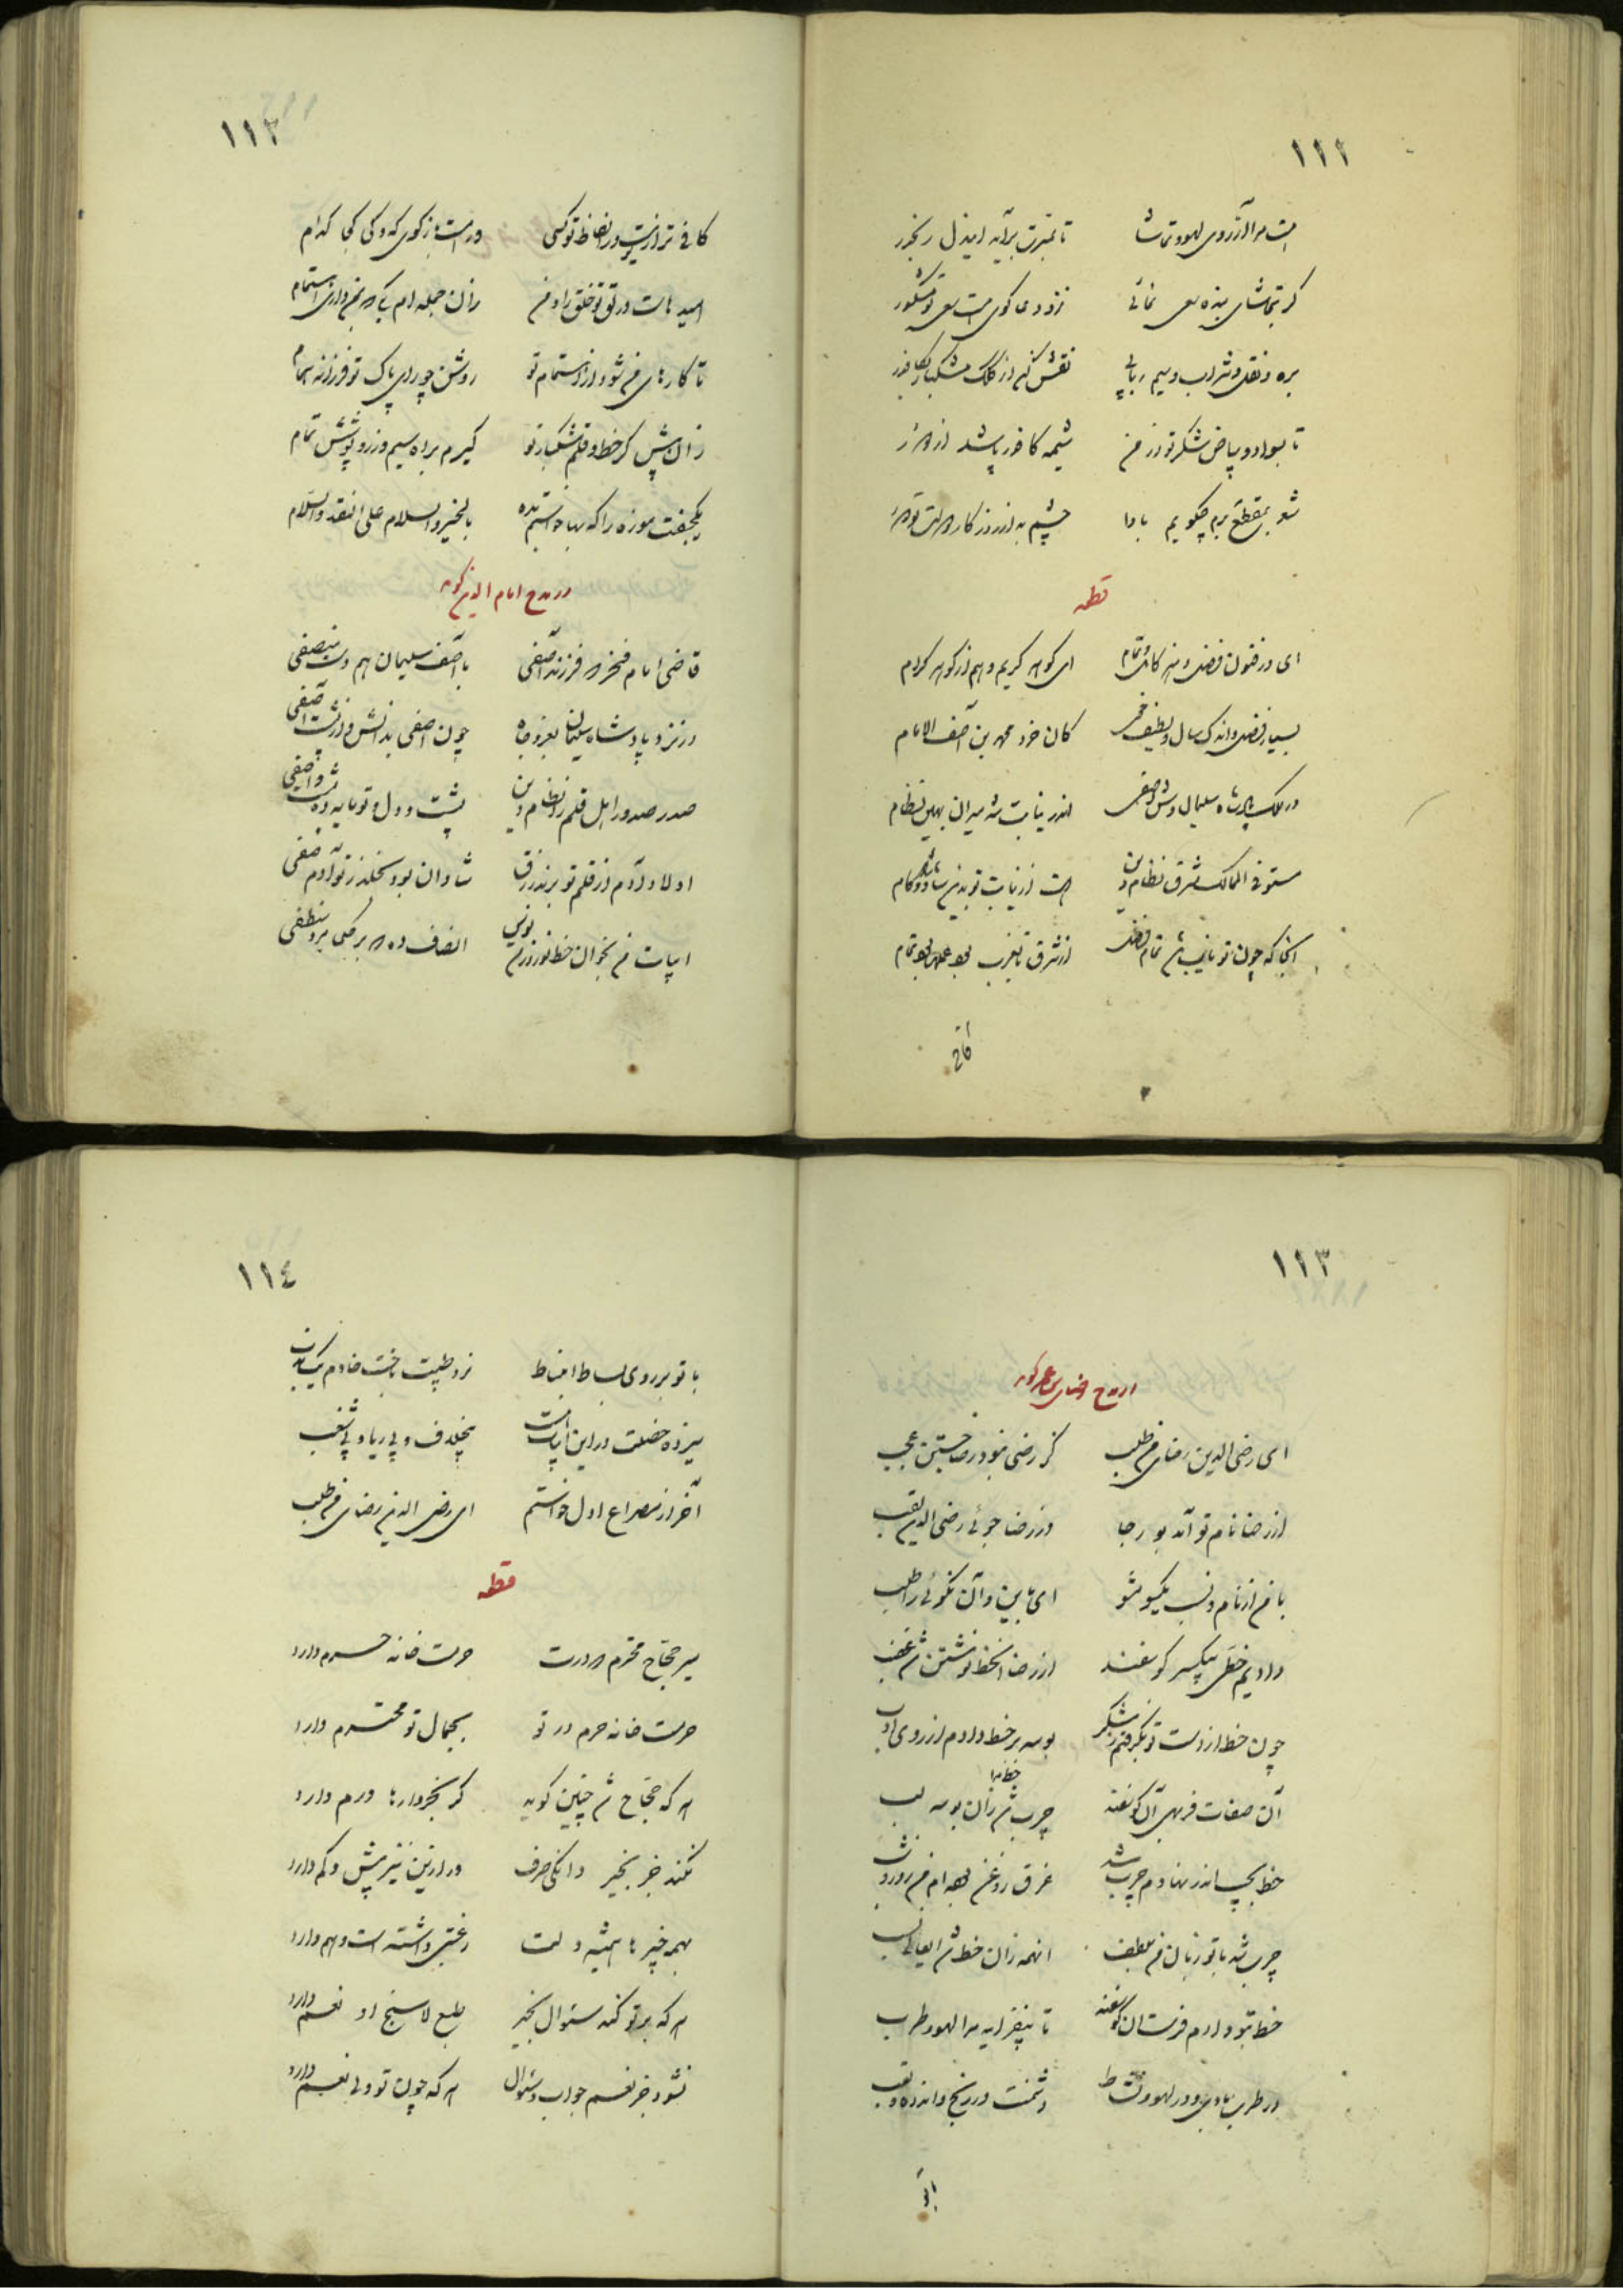 ١١١
هست مرا آرزوی لهو و تماشا
تا بمیرت برآید این دل رنجور
گر بتماشای بنده سعی نمائی
نزد همه کوی هست سعی تو مشکور
بره و نقل و شراب و سیم ربابی
نقش کن از کلک مشکبار بکافور
تا بسواد و بیاض شکر تو از من
شعر بمقطع برم چگویم بادا
چشم بد از روزگار دولت تو دور
قطعه
ای در فنون فضل و هنر کامل و تمام
ای گوهر کریم و هم از گوهر کرام
بسیار فضل و اندک سال و لطیف
کان خرد محمد بن آصف الانام
در ملک پادشاه سلیمان وش آصفی
اندر نیابت شه میران بهین نظام
مستوفی الممالک شرق نظام دین
هست از نیابت تو بدین شاد و دوستکام
آنجا که چون تو نایب تمام فضل
از شرق تا بغرب بود عدل بو تمام
کافی
١١٢
کافی تر از تو نیست در الفاظ تو کسی
ور هست باز گوی که و کی کجا کدام
امید هاست در تو خلق را و من
زان جمله ام یکی که بمن داری اهتمام
تا کارهای من شود از اهتمام تو
روشن چو رای پاک تو فرزانه همام
زان پیش کز خط و قلم مشکبار تو
گیرم براه سیم و زر و پوشش تمام
یکجفت موزه را که بها خواستم بده
بالخیر و السلام علی النقد و السلام
در مدح امام الدین گوید
قاضی امام مفخر فرزند آصفی
با آصف سلیمان هم دست منصفی
در نزد پادشاه سلیمان بعز و جاه
چون آصفی بدانش و از پشت آصفی
صدر صدور اهل قلم را نظام دین
پشت و دل و تو مایه ده پشت و آصفی
اولاد آدم از قلم تو برند رزق
شادان بود بخلد ز تو آدم صفی
ابیات من بخوان خط نو زر من نویس
انصاف ده که بر فلکی بر و منطفی
١١٣
در مدح رضای بن عمر گوید
ای رضی الدین رضای من طلب
کز رضی نبود رضا جستن عجب
از رضا نام تو آمد بو رجا
وز رضا جوئی رضی الدین لقب
با من از نام و نسب یکسو مشو
ای باین و آن نکوئی را طلب
دادیم خطی بیکسر گوسفند
از رضا آنخط نوشتن نز غضب
چون خط از دست تو بگرفتم بشکر
بوسه بر خط دادم از روی ادب
آن صفات فربهی آن گوسفند
خط مرا
چرب شد زان بوسه لب
خط بجیب اندر نهادم چرب شد
غرق روغن بوده ام من روز و شب
چرب شد با تو زبان من بلطف
اینهمه زان خط شد ایعالی نسب
خط بتو دادم فرست آن گوسفند
تا بیفزاید مرا لهو و طرب
در طرب بادی و در لهو و نشاط
دشمنت در رنج و اندوه و تعب
با تو
١١٤
با تو بر روی بساط انبساط
نرد طیبت باخت خادم یک ندب
سیزده خصلت در این ابیات هست
بیخلاف و بی ریا و بی شغب
آخر از مصراع اول خواستم
ای رضی الدین رضای من طلب
قطعه
میر حجاج محترم که درت
حرمت خانه حرم دارد
حرمت خانه حرم در تو
بجمال تو محترم دارد
هر که حجاج شد چنین گوید
گر بخروارها درم دارد
نکند جز بخیر دانگی صرف
ور ازین نیز بیش و کم دارد
بهمه خیرها همیشه دلت
رغبتی داشته است و هم دارد
هر که بر تو کند سئوال بخیر
طبع لاسنج او نعم دارد
نشود جز نعم جواب سئوال
هر که چون تو ولی نعم دارد